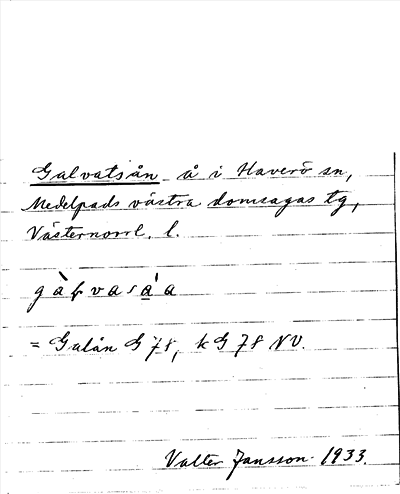 Galvatsån å i Haverö sn,
Medelpads västra domsagas tg,
Västernorrl. l.
= Galån G 78, k G 78 NV.
Valter Jansson 1933.